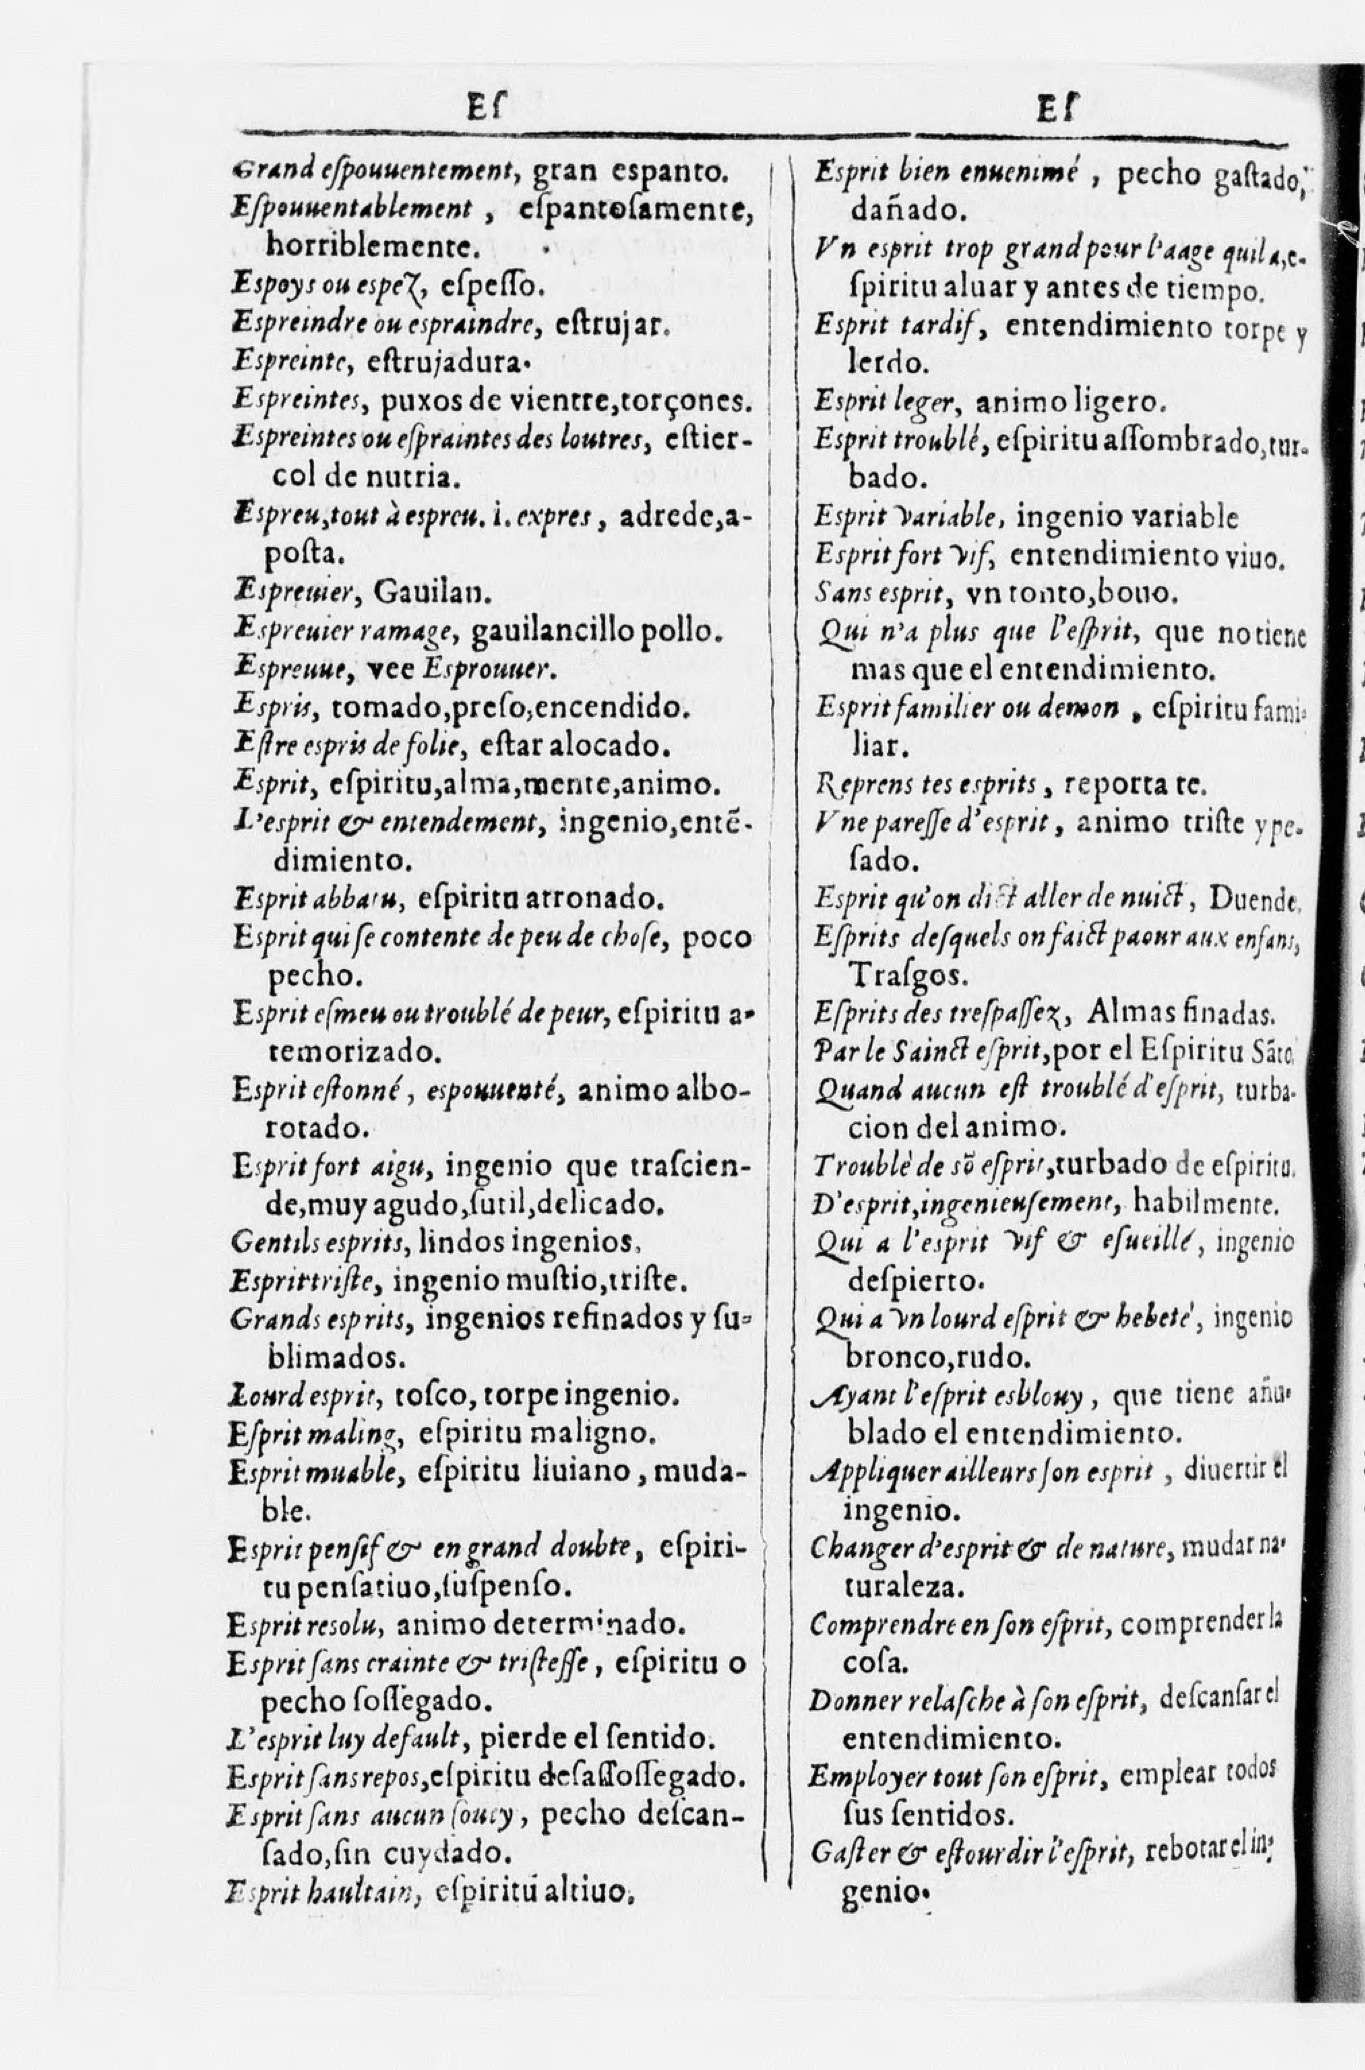 Eſ
Grand eſpouuentement, gran espanto.
Eſpouuentablement, eſpantoſamente,
horriblemente.
Espoys ou espez, eſpeſſo.
Espreindre ou espraindre, eſtrujar.
Espreinte, eſtrujadura.
Espreintes, puxos de vientre, torçones.
Espreintes ou eſpraintes des loutres, eſtier-
col de nutria.
Espreu, tout à espreu. i. expres, adrede, a-
poſta.
Espreuier, Gauilan.
Espreuier ramage, gauilancillo pollo.
Espreuue, vee Esprouuer.
Espris, tomado, preſo, encendido.
Eſtre espris de folie, eſtar alocado.
Esprit, eſpiritu, alma, mente, animo.
L'esprit & entendement, ingenio, entẽ-
dimiento.
Esprit abbatu, eſpiritu atronado.
Esprit qui ſe contente de peu de choſe, poco
pecho.
Esprit eſmeu ou troublé de peur, eſpiritu a-
temorizado.
Esprit eſtonné, espouuenté, animo albo-
rotado.
Esprit fort aigu, ingenio que traſcien-
de, muy agudo, ſutil, delicado.
Gentils esprits, lindos ingenios.
Esprit triſte, ingenio muſtio, triſte.
Grands esprits, ingenios refinados y ſu-
blimados.
Lourd esprit, toſco, torpe ingenio.
Eſprit maling, eſpiritu maligno.
Esprit muable, eſpiritu liuiano, muda-
ble.
Esprit penſif & en grand doubte, eſpiri-
tu penſatiuo, ſuſpenſo.
Esprit resolu, animo determinado.
Esprit ſans crainte & triſteſſe, eſpiritu o
pecho ſoſſegado.
L'esprit luy default, pierde el ſentido.
Esprit ſans repos, eſpiritu deſaſſoſſegado.
Esprit ſans aucun ſoucy, pecho deſcan-
ſado, ſin cuydado.
Esprit haultain, eſpiritu altiuo.
Eſ
Esprit bien enuenimé, pecho gaſtado,
dañado.
Vn esprit trop grand pour l'aage quil a, e-
ſpiritu aluar y antes de tiempo.
Esprit tardif, entendimiento torpe y
lerdo.
Esprit leger, animo ligero.
Esprit troublé, eſpiritu aſſombrado, tur-
bado.
Esprit variable, ingenio variable
Esprit fort vif, entendimiento viuo.
Sans esprit, vn tonto, bouo.
Qui n'a plus que l'eſprit, que no tiene
mas que el entendimiento.
Esprit familier ou demon, eſpiritu fami-
liar.
Reprens tes esprits, reporta te.
Vne pareſſe d'esprit, animo triſte y pe-
ſado.
Esprit qu'on dict aller de nuict, Duende.
Eſprits deſquels on faict paour aux enfans,
Traſgos.
Eſprits des treſpaſſez, Almas finadas.
Par le Sainct eſprit, por el Eſpiritu Sãto.
Quand aucun eſt troublé d'eſprit, turba-
cion del animo.
Troublé de sõ eſprit, turbado de eſpiritu.
D'esprit, ingenieuſement, habilmente.
Qui a l'esprit vif & eſueillé, ingenio
deſpierto.
Qui a vn lourd eſprit & hebeté, ingenio
bronco, rudo.
Ayant l'eſprit esblouy, que tiene añu-
blado el entendimiento.
Appliquer ailleurs ſon esprit, diuertir el
ingenio.
Changer d'esprit & de nature, mudar na-
turaleza.
Comprendre en ſon eſprit, comprender la
coſa.
Donner relaſche à ſon eſprit, deſcanſar el
entendimiento.
Employer tout ſon eſprit, emplear todos
ſus ſentidos.
Gaſter & eſtourdir l'eſprit, rebotar el in-
genio.